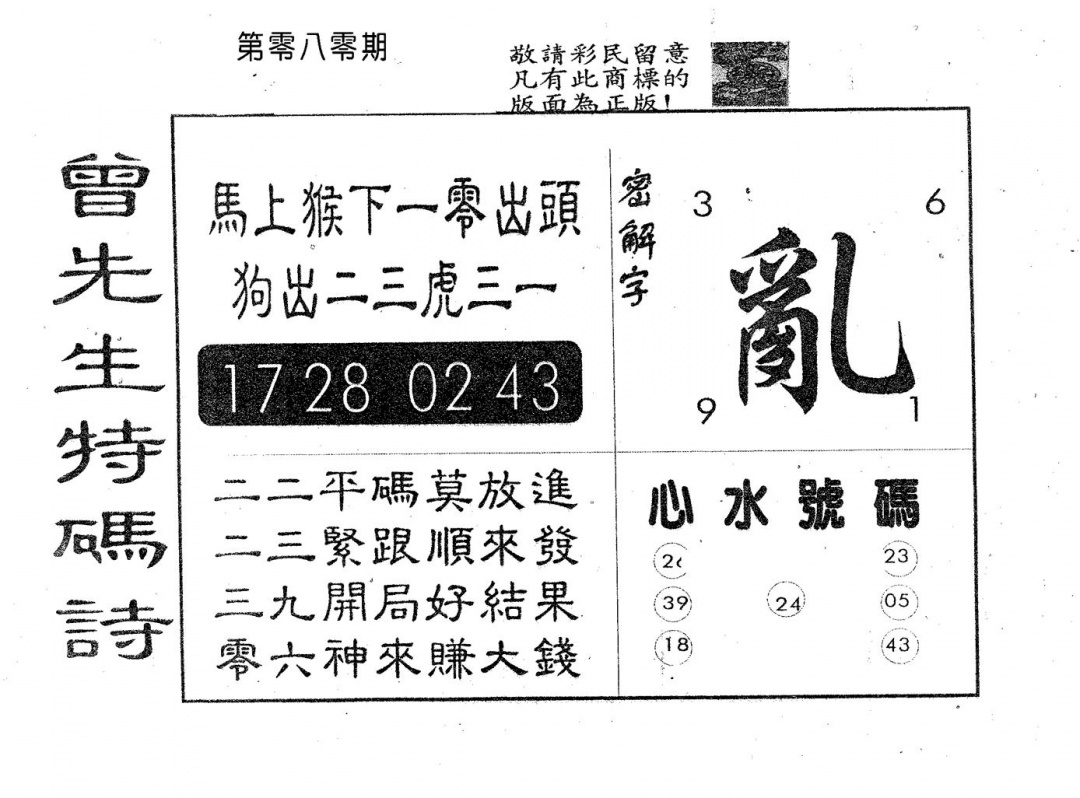 第零八零期
敬請彩民留意
凡有此商標的
版面為正版！
曾先生特碼詩
馬上猴下一零出頭
狗出二三虎三一
17 28 02 43
密解字
3 6
亂
9 1
二二平碼莫放進
二三緊跟順來發
三九開局好結果
零六神來賺大錢
心水號碼
23
39 24 05
18 43